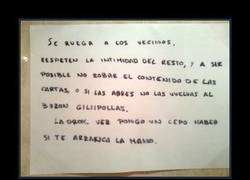 SE RUEGA A LOS VECINOS,
RESPETEN LA INTIMIDAD DEL RESTO, Y A SER
POSIBLE NO ROBAR EL CONTENIDO DE LAS
CARTAS. O SI LAS ABRES NO LAS VUELVAS AL
BUZON GILIPOLLAS.
LA PROX. VEZ PONGO UN CEPO HABER
SI TE ARRANCA LA MANO.